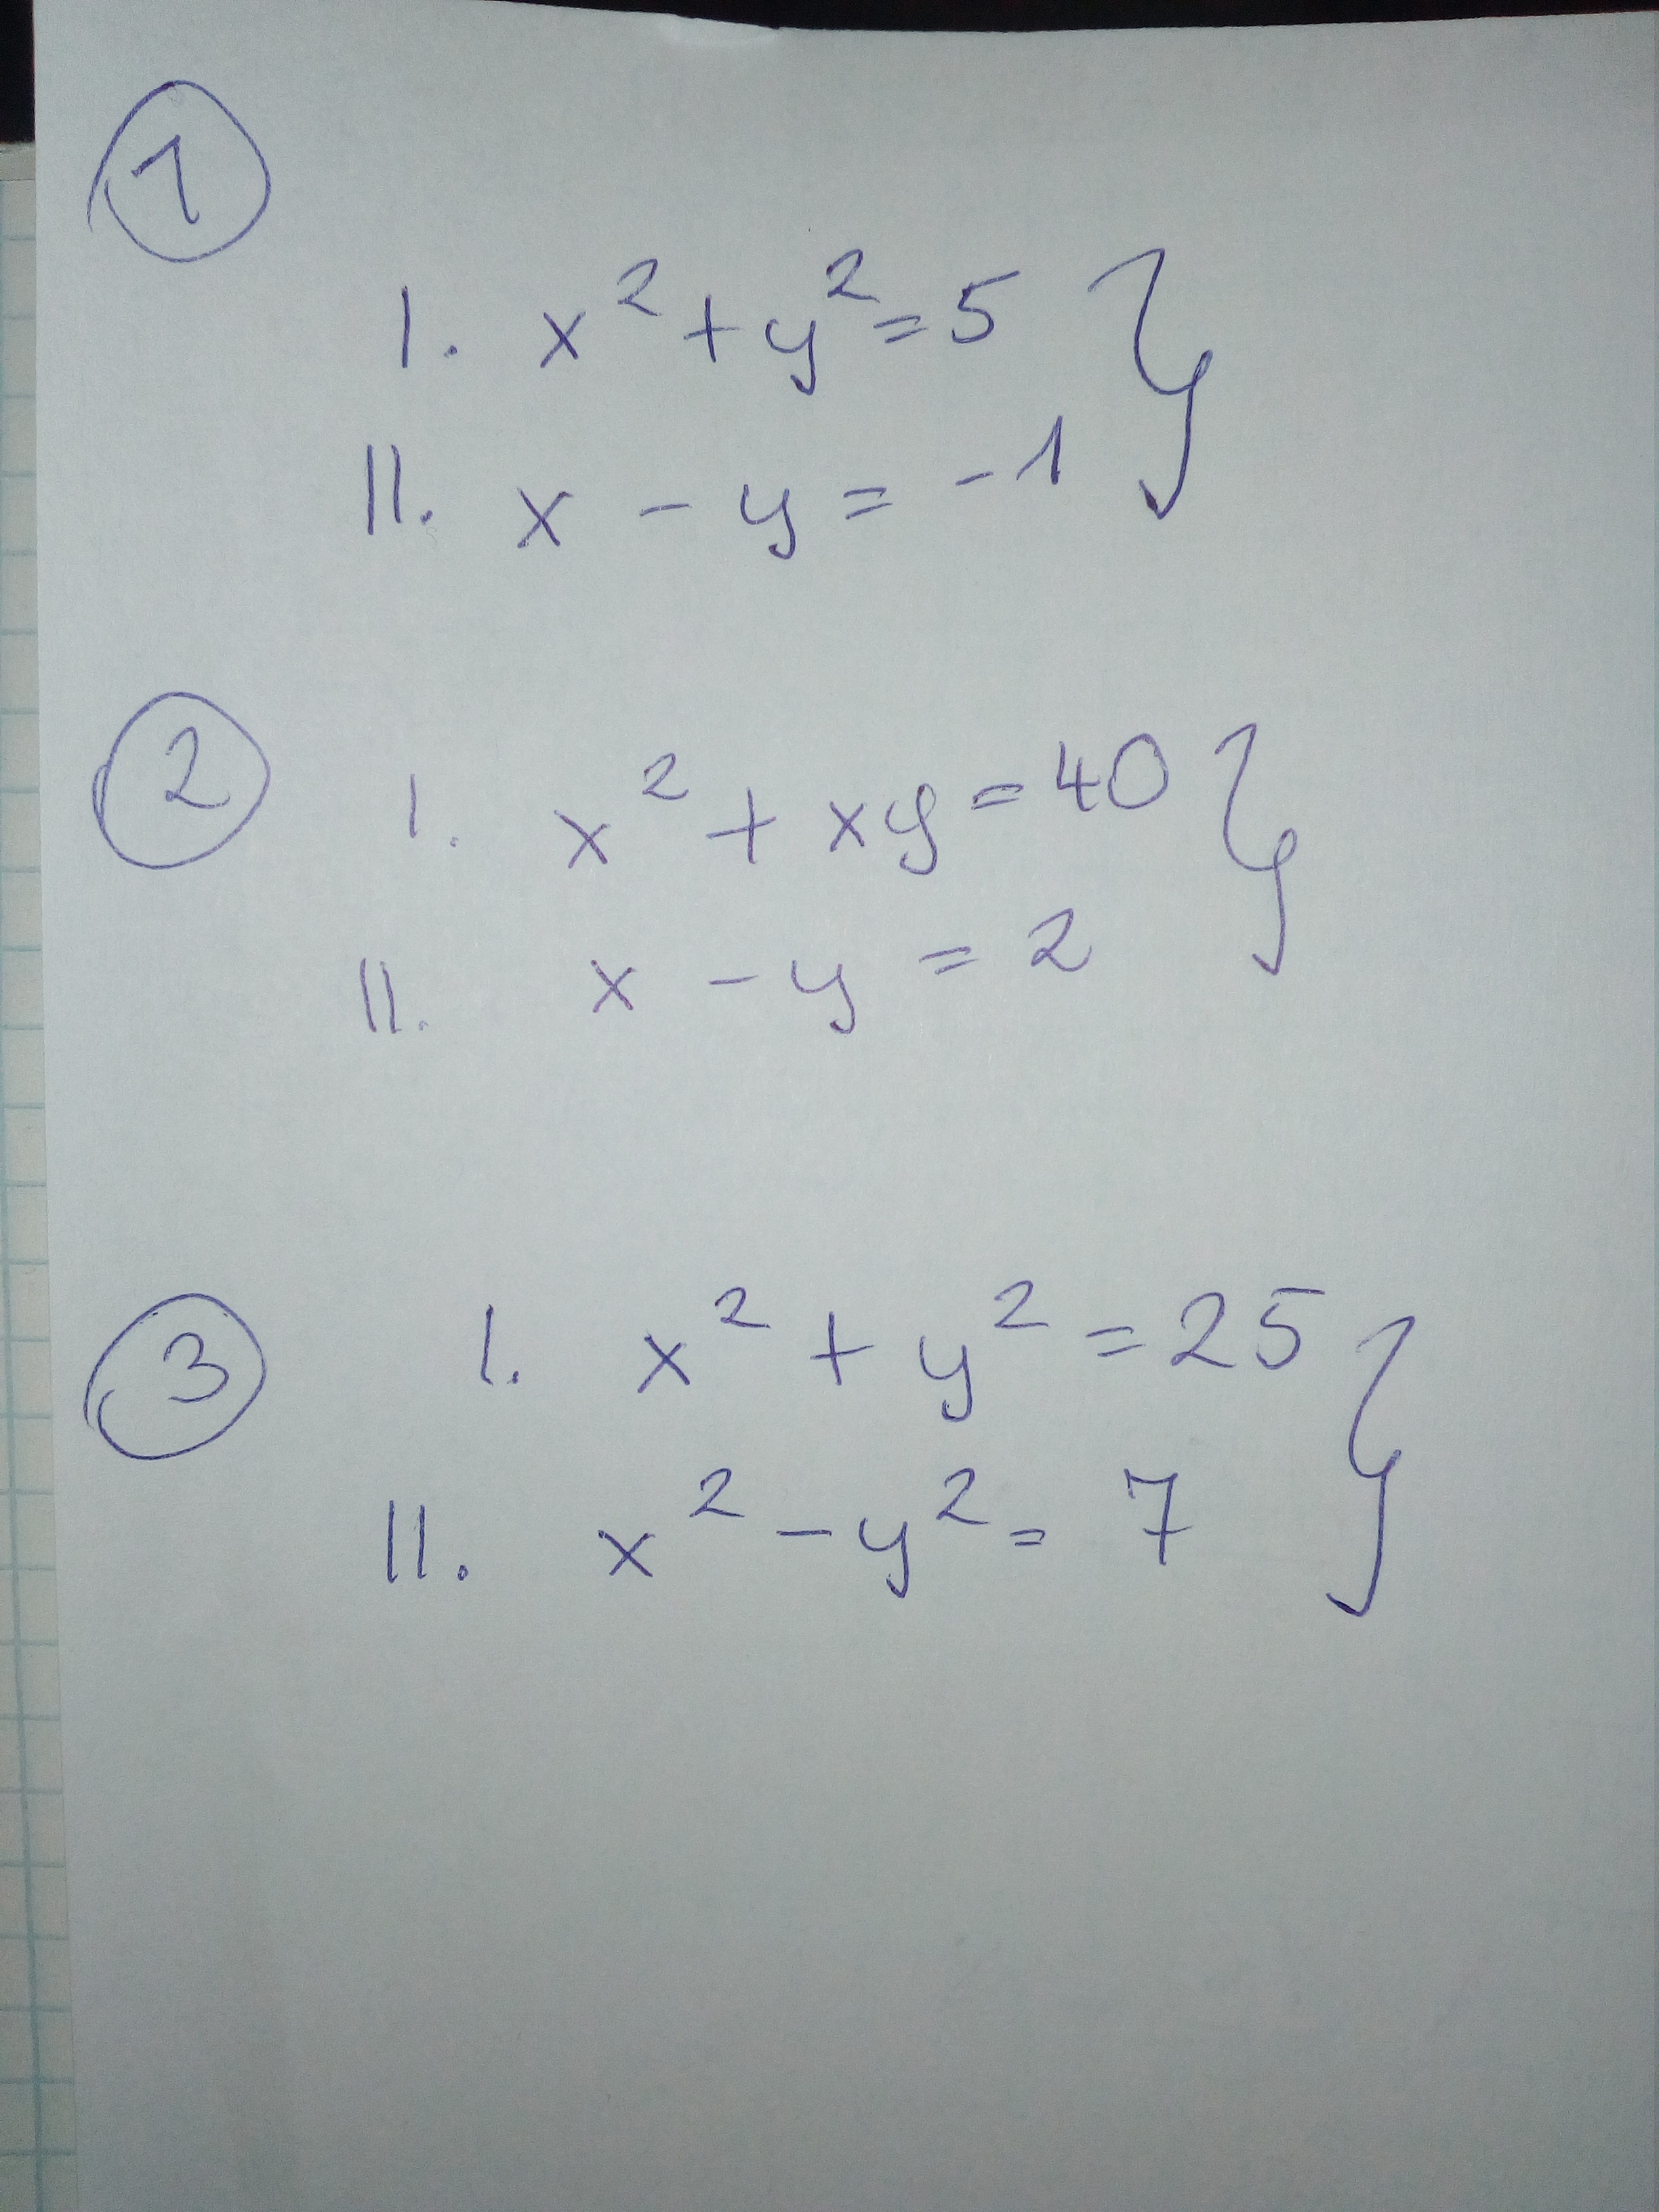 1
I. x² + y² = 5 }
II. x - y = -1
2
I. x² + xy = 40 }
II. x - y = 2
3
I. x² + y² = 25 }
II. x² - y² = 7